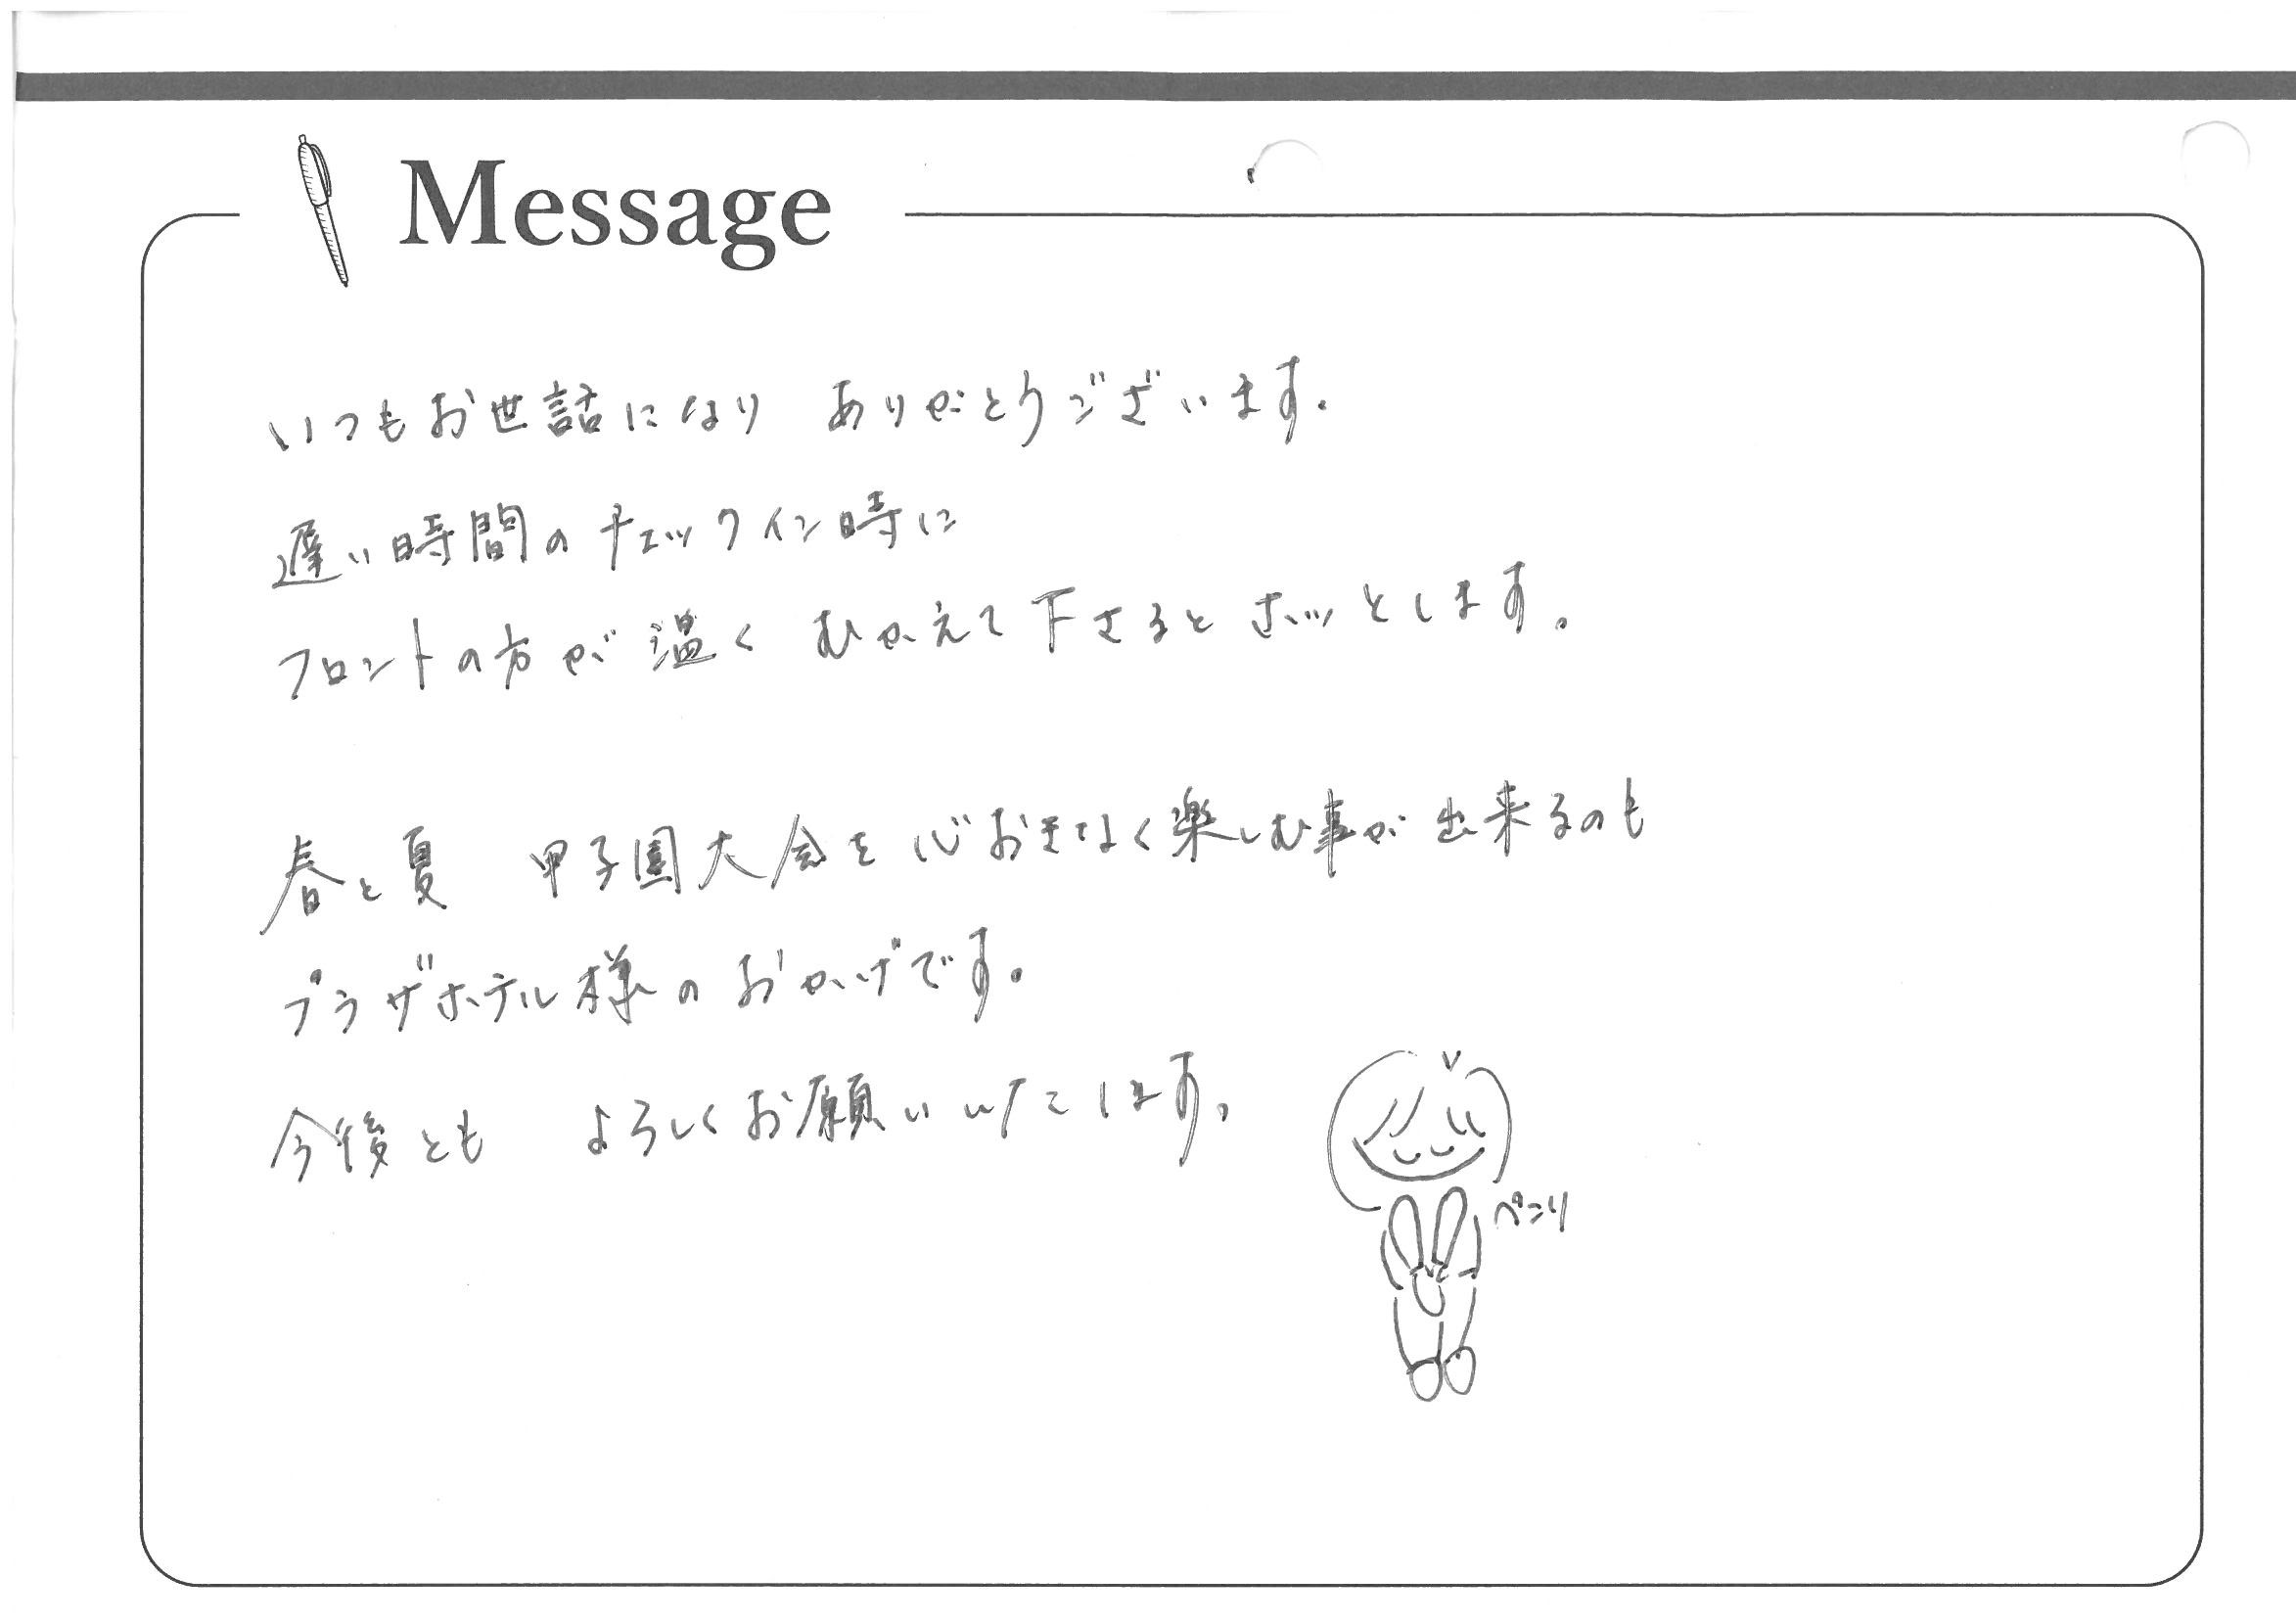 Message
いつもお世話になり ありがとうございます.
遅い時間のチェックイン時に
フロントの方が温く むかえて下さるとホッとします。
春と夏 甲子園大会を心おきなく楽しむ事が出来るのも
プラザホテル様のおかげです。
今後とも よろしくお願いいたします。
ペコリ